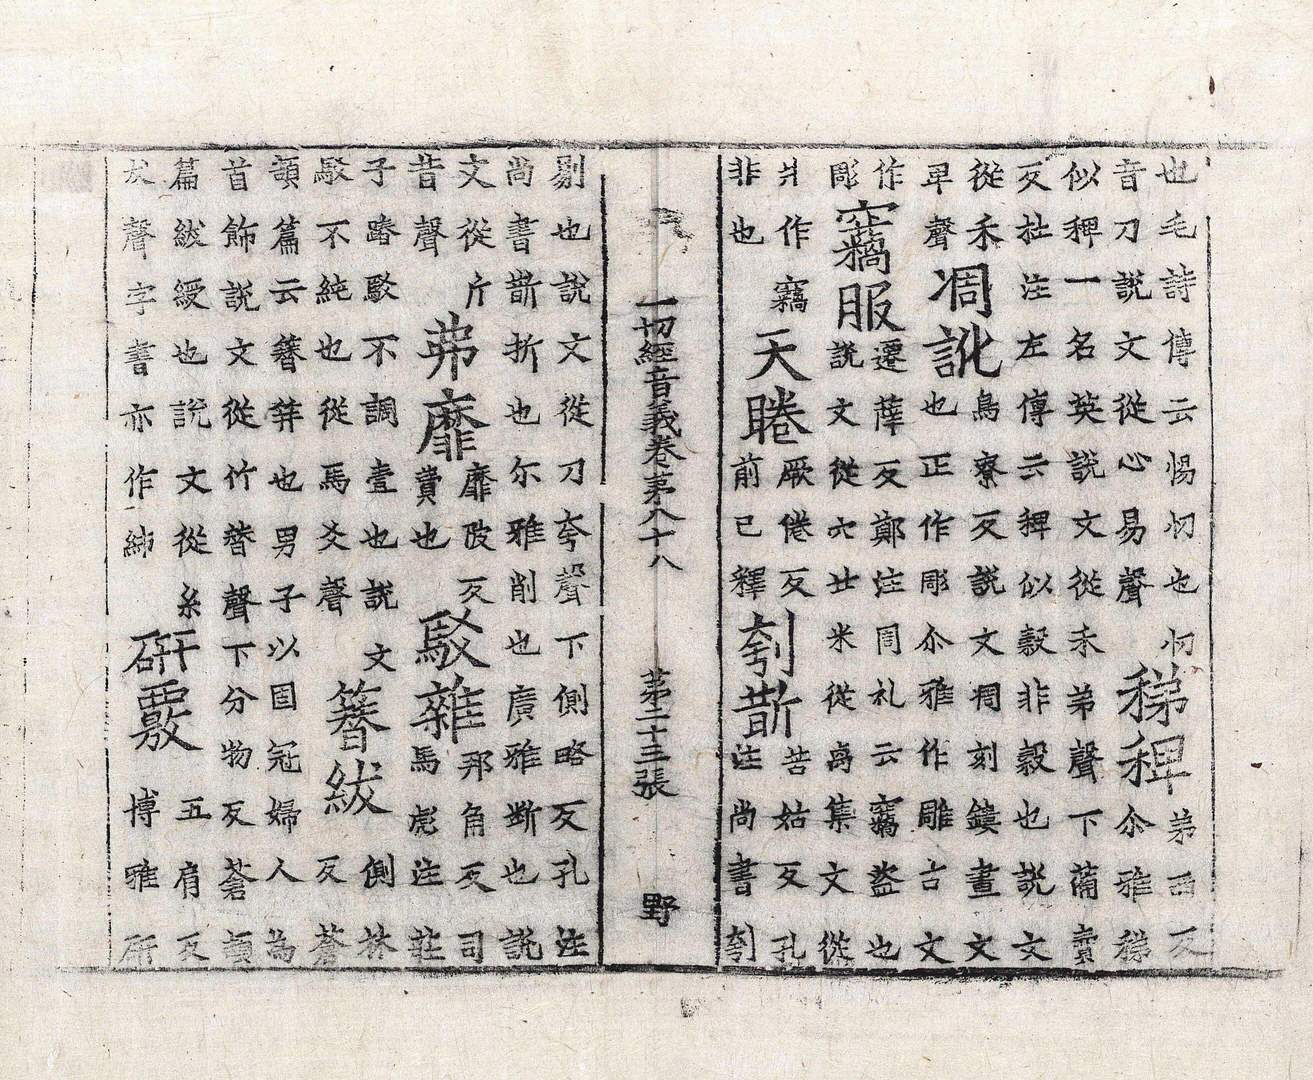 也毛詩傳云惕忉也忉
音刀說文從心易聲
稊稗
弟西反
尒雅稊
似稗一名英說文從禾弟聲下蒲賣
反杜注左傳云稗似穀非穀也說文
從禾
卑聲
凋訛
鳥寮反說文凋刻鏤畫文
也正作彫尒雅作雕古文
作
彫
竊服
遷薛反鄭注周礼云竊盜也
說文從穴廿米從离集文從
廾作竊
非也
天睠
厥倦反
前已釋
刳斮
苦姑反孔
注尚書刳
一切經音義卷苐八十八 苐二十三張 野
剔也說文從刀夸聲下側略反孔注
尚書斮折也尒雅削也廣雅斷也說
文從斤
昔聲
茀靡
靡改反
費也
駁雜
邦角反司
馬彪注莊
子踳駁不調壹也說文
駁不純也從馬爻聲
簪紱
側林
反蒼
頡篇云簪笄也男子以固冠婦人為
首飾說文從竹朁聲下分物反蒼頡
篇紱綬也說文從糸
犮聲字書亦作紼
研覈
五肩反
博雅研